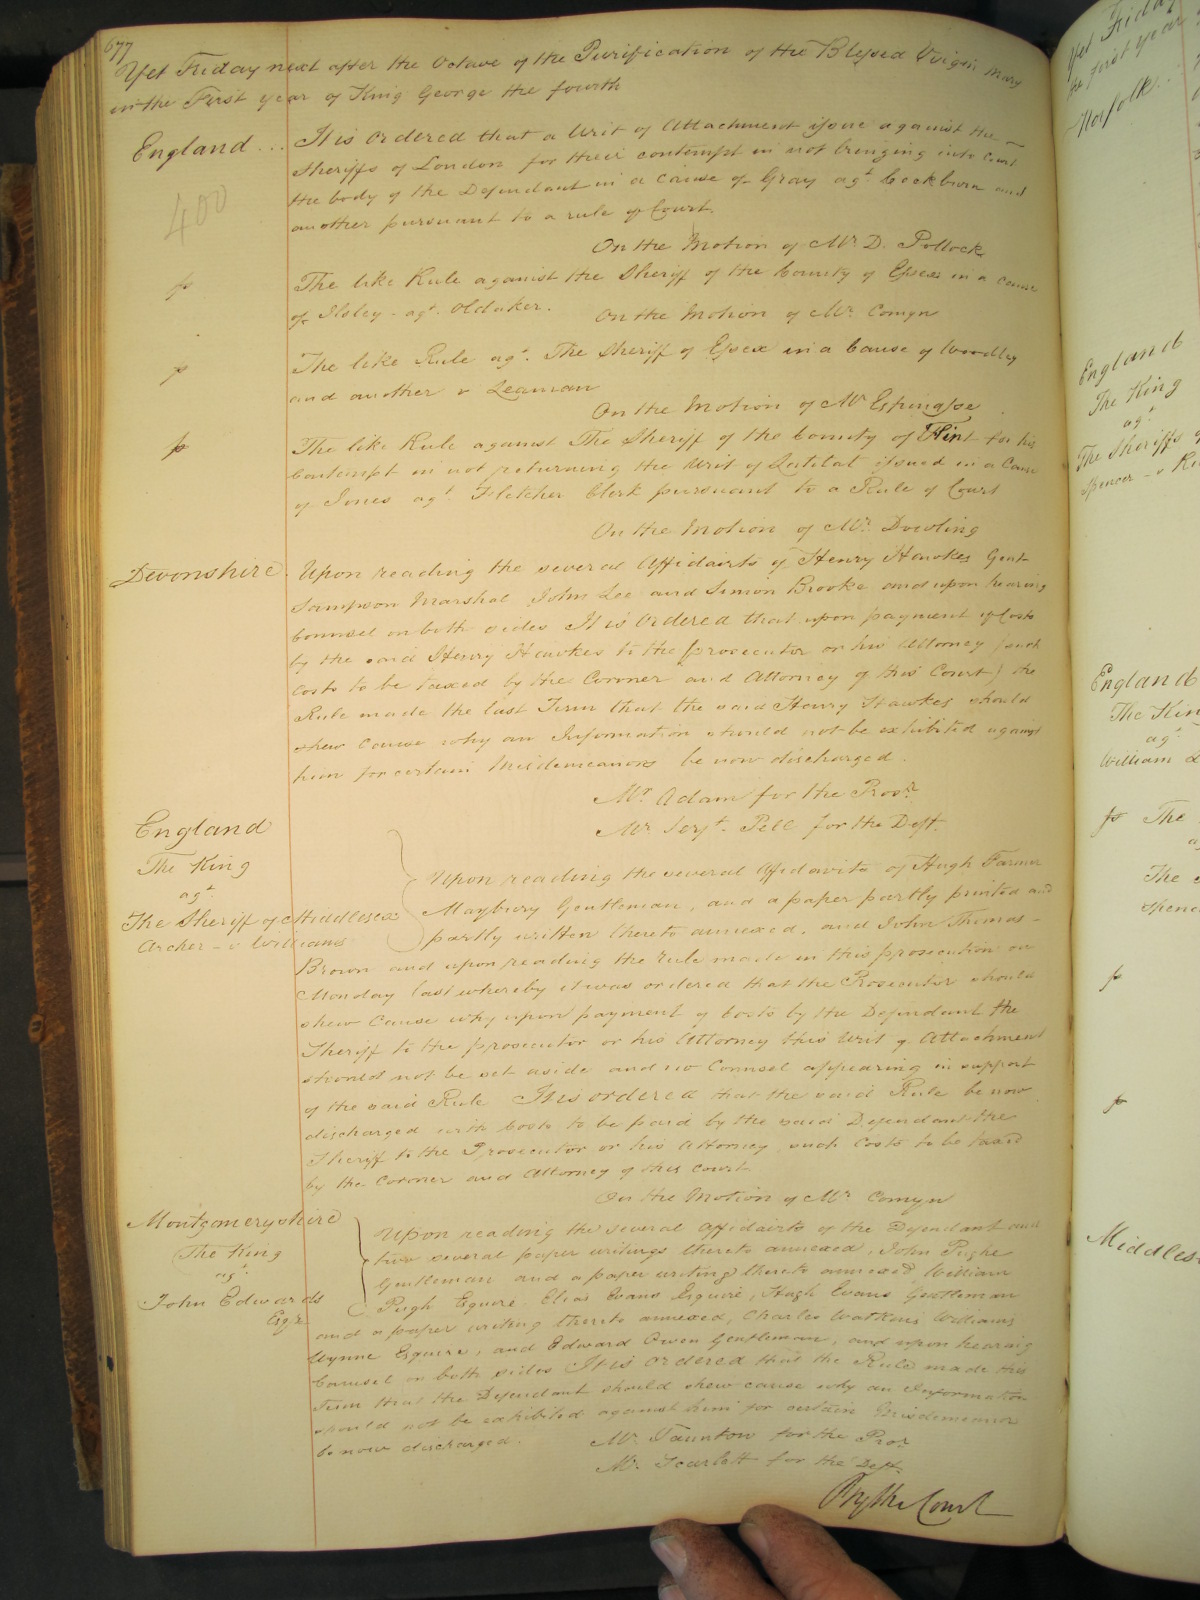 677
Yet Friday next after the Octave of the Purification of the Blessed Virgin Mary
in the First year of King George the fourth
England ... It is Ordered that a Writ of Attachment issue against the
Sheriffs of London for their contempt in not bringing into Court
the body of the Defendant in a Cause of Gray agt. Cockburn and
another pursuant to a rule of Court.
400
On the Motion of Mr D. Pollock
The like Rule against the Sheriff of the County of Essex in a cause
of Ilsley agt. Oldaker. On the Motion of Mr. Comyn
The like Rule agt. The Sheriff of Essex in a Cause of Woodley
and another v Leaman
On the Motion of Mr Espinasse
The like Rule against The Sheriff of the County of Flint for his
Contempt in not returning the Writ of Latitat issued in a Cause
of Jones agt. Fletcher Clerk pursuant to a Rule of Court
On the Motion of Mr. Dowling
Devonshire. Upon reading the several Affidavits of Henry Hawkes Gent.
Sampson Marshal John Lee and Simon Brooke and upon hearing
Counsel on both sides It is Ordered that upon payment of Costs
by the said Henry Hawkes to the prosecutor or his Attorney (such
Costs to be taxed by the Coroner and Attorney of this Court) the
Rule made the last Term that the said Henry Hawkes should
shew Cause why an Information should not be exhibited against
him for certain Misdemeanors be now discharged.
Mr. Adam for the Prosr.
Mr. Serjt. Pell for the Deft.
England
The King
agt.
The Sheriff of Middlesex
Archer - v Williams
Upon reading the several Affidavits of Hugh Farmer
Maybury Gentleman, and a paper partly printed and
partly written thereto annexed, and John Thomas
Brown and upon reading the rule made in this prosecution on
Monday last whereby it was ordered that the Prosecutor should
shew Cause why upon payment of Costs by the Defendant the
Sheriff to the prosecutor or his Attorney this Writ of Attachment
should not be set aside and no Counsel appearing in support
of the said Rule It is ordered that the said Rule be now
discharged with Costs to be paid by the said Defendant the
Sheriff to the Prosecutor or his Attorney such Costs to be taxed
by the Coroner and Attorney of this Court.
On the Motion of Mr Comyn
Montgomeryshire
The King
agt.
John Edwards
Esqre
Upon reading the several Affidavits of the Defendant and
two several paper writings thereto annexed, John Pughe
Gentleman and a paper writing thereto annexed William
Pugh Esquire. Elias Evans Esquire, Hugh Evans Gentleman
and a paper writing thereto annexed, Charles Watkins Williams
Wynne Esquire, and Edward Owen Gentleman, and upon hearing
Counsel on both sides It is ordered that the Rule made this
Term that the Defendant should shew cause why an Information
should not be exhibited against him for certain Misdemeanors
be now discharged.
Mr. Taunton for the Prosr
Mr. Scarlett for the Deft.
By the Court
Yet Friday
the first year
Norfolk.
England
The King
agt.
The Sheriffs of
Spencer - v
England
The King
agt.
William
The
The
Spenc
Middles